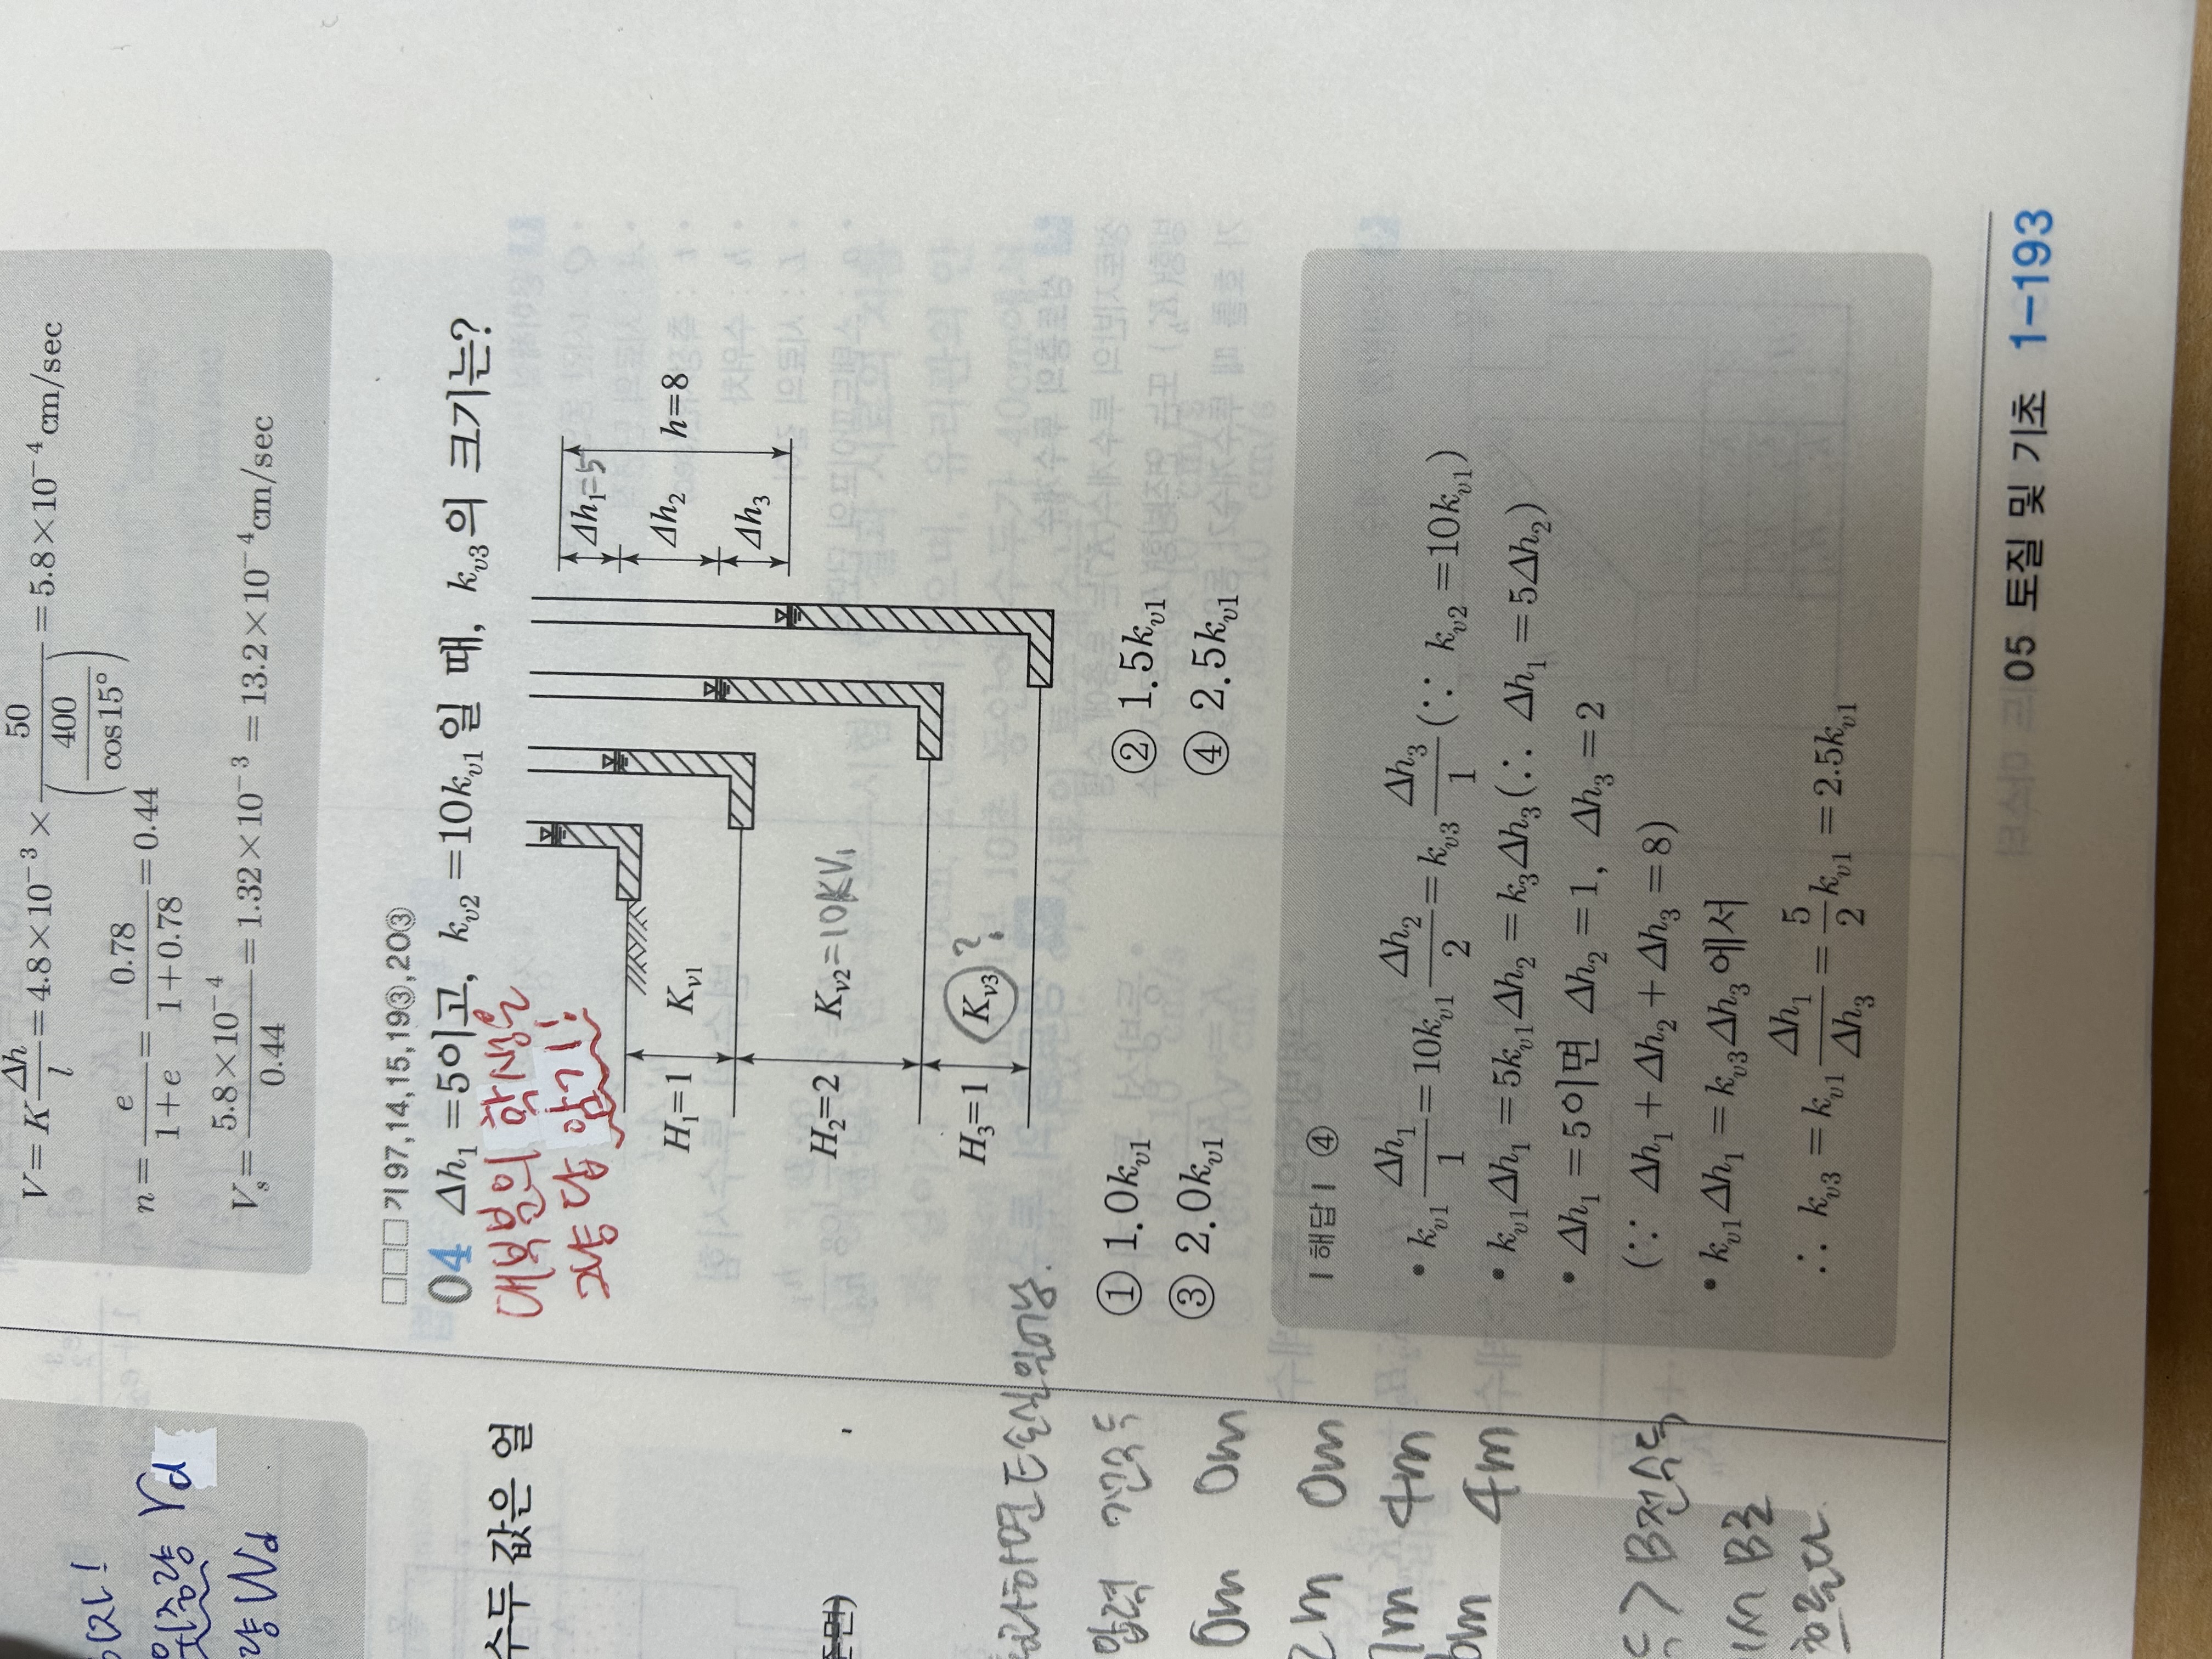 V = K Δh/l = 4.8×10⁻³ × 50/(400/cos15°) = 5.8×10⁻⁴ cm/sec
n = e/(1+e) = 0.78/(1+0.78) = 0.44
V_s = 5.8×10⁻⁴/0.44 = 1.32×10⁻³ = 13.2×10⁻⁴ cm/sec
□□□ 기97,14,15,19③,20③
04 Δh₁=5이고, k_v2=10k_v1일 때, k_v3의 크기는?
대부분의 학생들
그냥 답 암기!
Δh₁=5
Δh₂
Δh₃
h=8
H₁=1 K_v1
H₂=2 K_v2=10KV₁
H₃=1 K_v3?
① 1.0k_v1 ② 1.5k_v1
③ 2.0k_v1 ④ 2.5k_v1
| 해답 | ④
• k_v1 Δh₁/1 = 10k_v1 Δh₂/2 = k_v3 Δh₃/1 (∵ k_v2=10k_v1)
• k_v1Δh₁ = 5k_v1Δh₂ = k₃Δh₃ (∵ Δh₁=5Δh₂)
• Δh₁=5이면 Δh₂=1, Δh₃=2
(∵ Δh₁+Δh₂+Δh₃=8)
• k_v1Δh₁ = k_v3Δh₃에서
∴ k_v3 = k_v1 Δh₁/Δh₃ = 5/2 k_v1 = 2.5k_v1
05 토질 및 기초 1-193
γd
량 Wd
수두 값은 얼
하면 손실 일어남.
압력
0m 0m
2m 0m
1m 4m
0m 4m
> B전수두
B로
흐른다